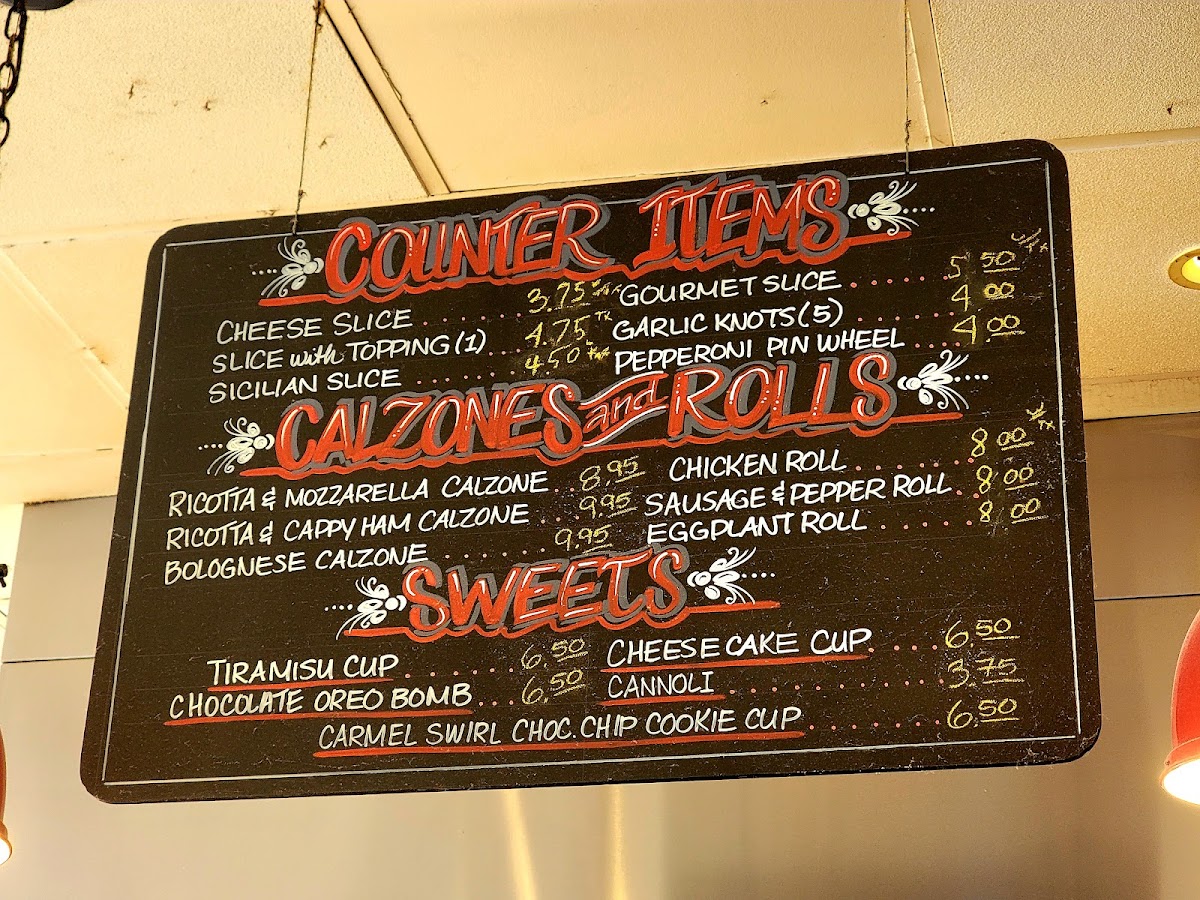 COUNTER ITEMS
CHEESE SLICE ........ 3.75
SLICE with TOPPING (1) .. 4.75 TX
SICILIAN SLICE ........ 4.50 TX
GOURMET SLICE ........ 5.50 TX
GARLIC KNOTS (5) ........ 4.00
PEPPERONI PIN WHEEL .... 4.00
CALZONES and ROLLS
RICOTTA & MOZZARELLA CALZONE .. 8.95
RICOTTA & CAPPY HAM CALZONE .. 9.95
BOLOGNESE CALZONE ........ 9.95
CHICKEN ROLL ........ 8.00 TX
SAUSAGE & PEPPER ROLL . 8.00
EGGPLANT ROLL ........ 8.00
SWEETS
TIRAMISU CUP ........ 6.50
CHOCOLATE OREO BOMB ... 6.50
CHEESE CAKE CUP .... 6.50
CANNOLI ........ 3.75
CARMEL SWIRL CHOC. CHIP COOKIE CUP ........ 6.50